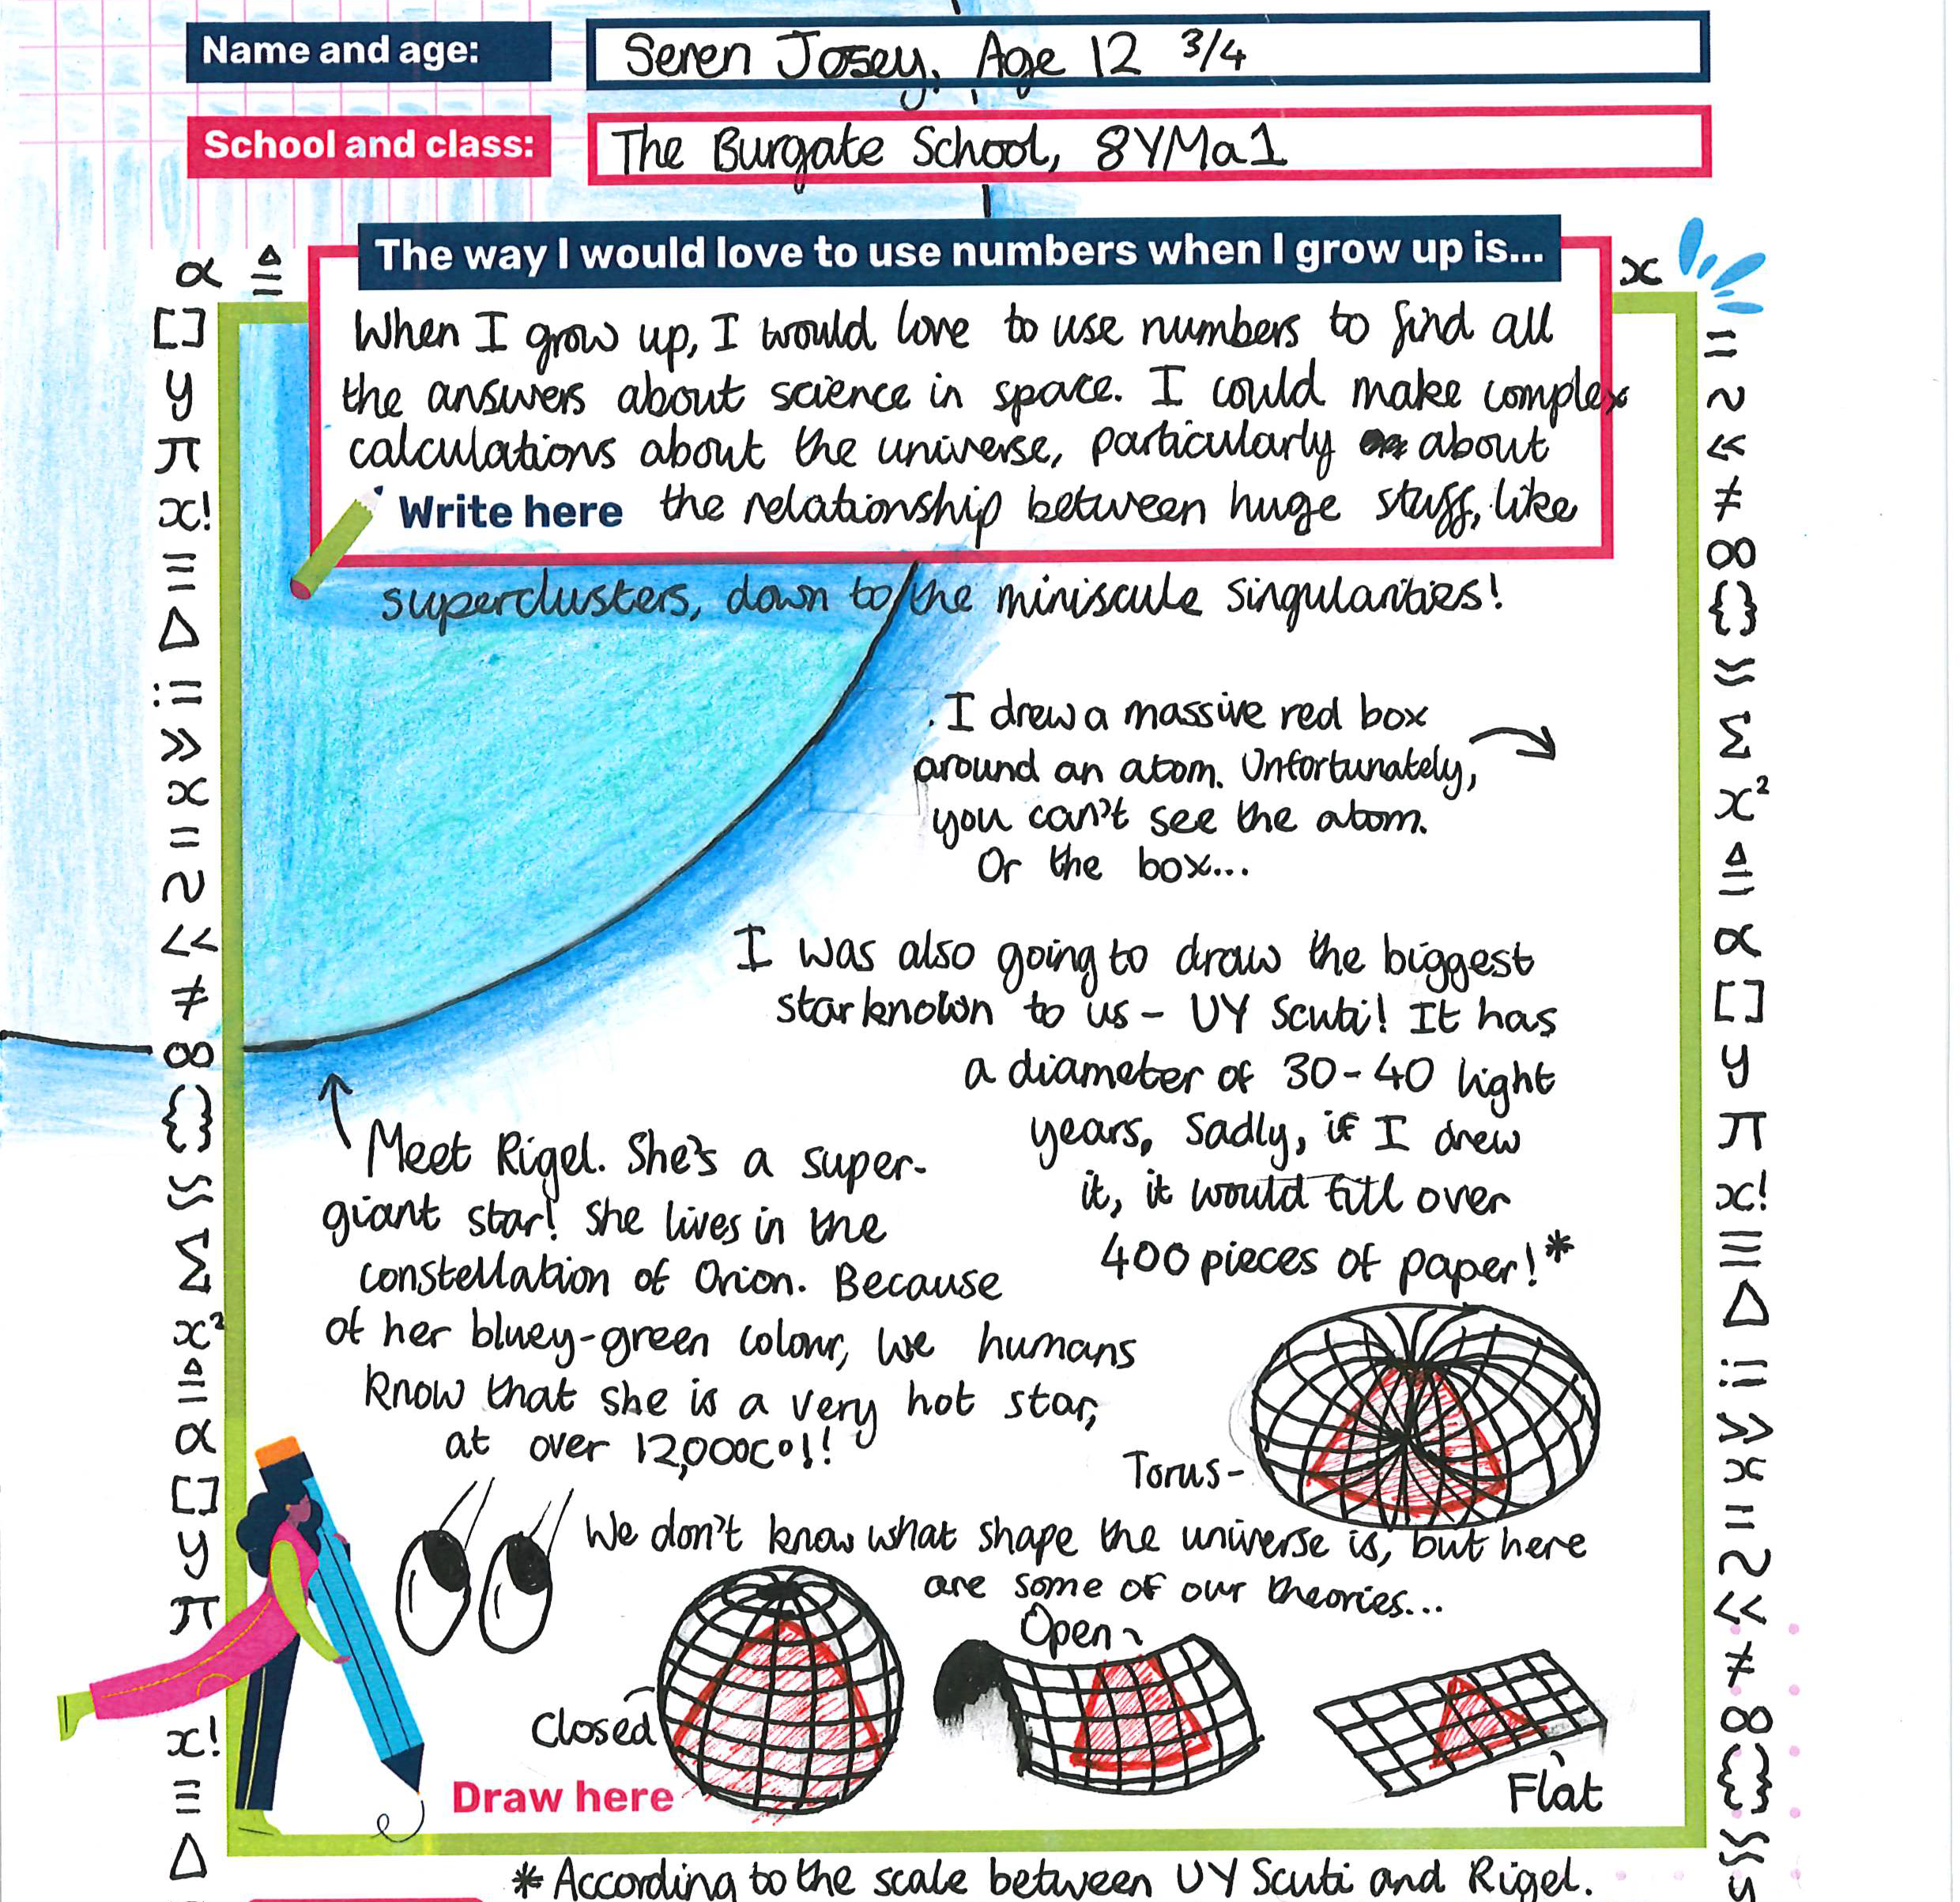 Name and age: Seren Josey, Age 12 3/4
School and class: The Burgate School, 8YMa1
The way I would love to use numbers when I grow up is...
When I grow up, I would love to use numbers to find all
the answers about science in space. I could make complex
calculations about the universe, particularly about
Write here the relationship between huge stuff, like
superclusters, down to the miniscule singularities!
I drew a massive red box
around an atom. Unfortunately,
you can't see the atom.
Or the box...
I was also going to draw the biggest
star known to us - UY Scuti! It has
a diameter of 30-40 light
years, Sadly, if I drew
it, it would fill over
400 pieces of paper!*
Meet Rigel. She's a super-
giant star! She lives in the
constellation of Orion. Because
of her bluey-green colour, we humans
know that she is a very hot star,
at over 12,000C°!!
Torus-
We don't know what shape the universe is, but here
are some of our theories...
Open
Closed
Flat
Draw here
* According to the scale between UY Scuti and Rigel.
α ≙
[]
y
π
x!
≡
Δ
∺
>>
x
=
~
<<
≠
∞
{}
≈
Σ
x²
≙
α
[]
y
π
x!
≡
Δ
x
=
~
<<
≠
∞
{}
≈
Σ
x²
≙
α
[]
y
π
x!
≡
Δ
>>
x
=
~
<<
≠
∞
{}